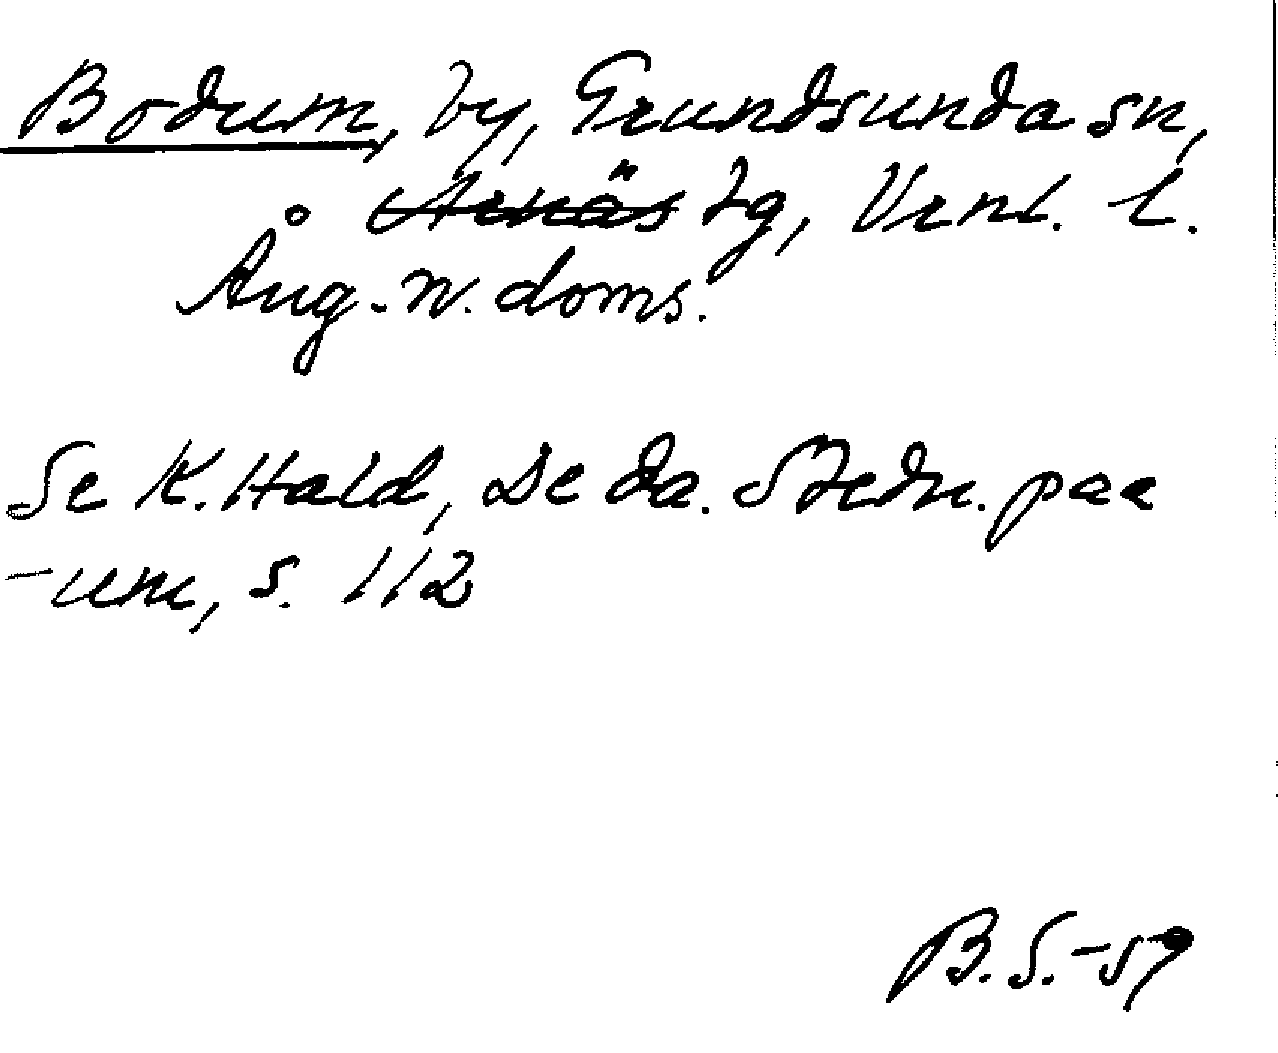 Bodum, by, Grundsunda sn,
Arnäs tg, Vrnl. l.
Ång.-n. doms.
Se K. Hald, De da. Stedn. paa
-um, s. 112
B.S.-59